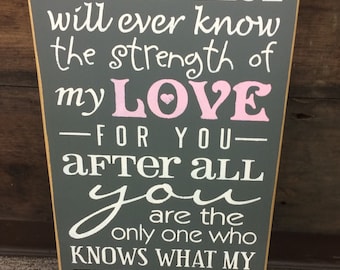 will ever know
the strength of
my LOVE
FOR YOU
AFTER ALL
you
are the
only one who
KNOWS WHAT MY